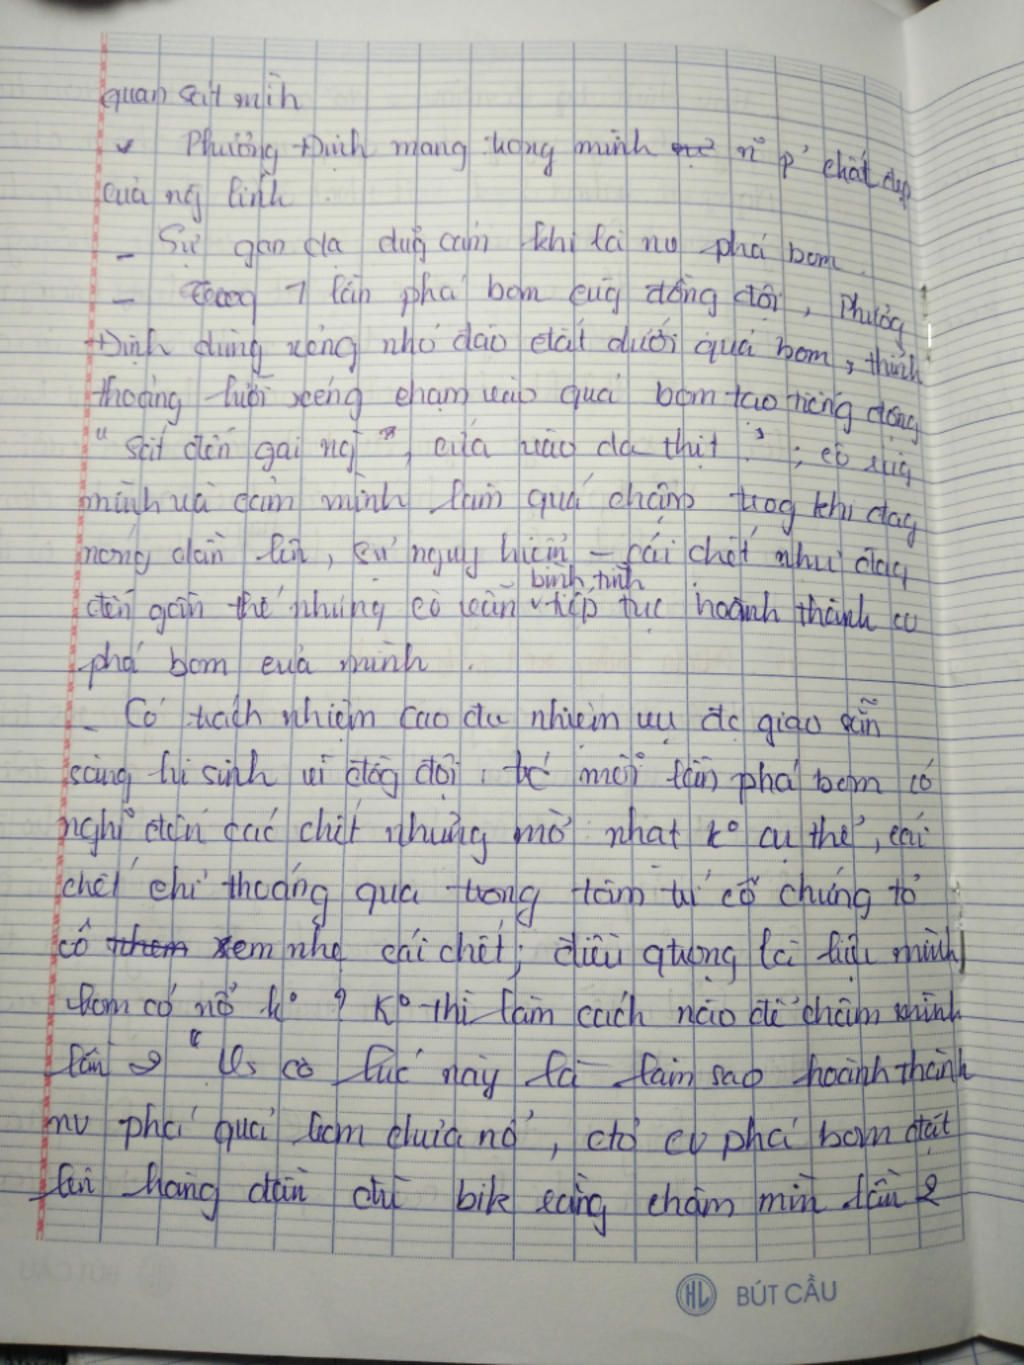 quan sát mìh
Phương Định mang trong mình n~ p' chất đẹp
của ng lính
- Sự gan dạ dug cảm khi là nv phá bom.
- Trong 1 lần phá bom cùg đồng đội, Phươg
Định dùng xẻng nhỏ đào đất dưới quả bom, thỉnh
thoảng lưỡi xẻng chạm vào quả bom tạo tiếng động
"sắt đến gai ng", cứa vào da thịt"; cô
mình và cảm mình làm quá chậm trog khi đag
nóng dần lên, sự nguy hiểm - cái chết như đag
đến gần thế nhưng cô vẫn bình tĩnh tiếp tục hoành thành cv
phá bom của mình.
- Có trách nhiệm cao du nhiệm vụ đc giao sẵn
sàng hi sinh vì đồg đội, mỗi lần phá bom có
nghĩ đến các chết nhưng mờ nhạt k° cụ thể, cái
chết chỉ thoáng qua trong tâm trí cô chứng tỏ
cô xem nhẹ cái chết; điều qtrọng là liệu mình,
bom có nổ k° ? K° thì làm cách nào để châm mình
lần 2" Vs cô lúc này là làm sao hoành thành
nv phá quả bom chưa nổ, đó cv phá bom đặt
lên hàng đần dù bik rằng châm mìn lần 2
HL BÚT CẦU